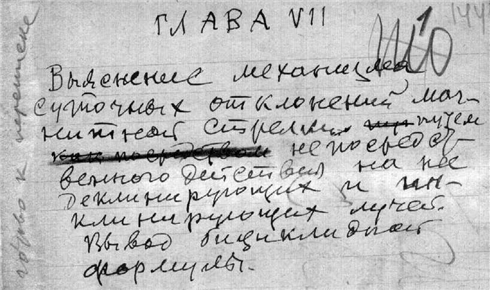 ГЛАВА VII
144
Выяснение механизма
суточных отклонений маг-
нитной стрелки путем
непосредст-
венного действия на нее
деклинирующих и ин-
клинирующих лучей.
Вывод бициклидной
формулы.
готово к переписке